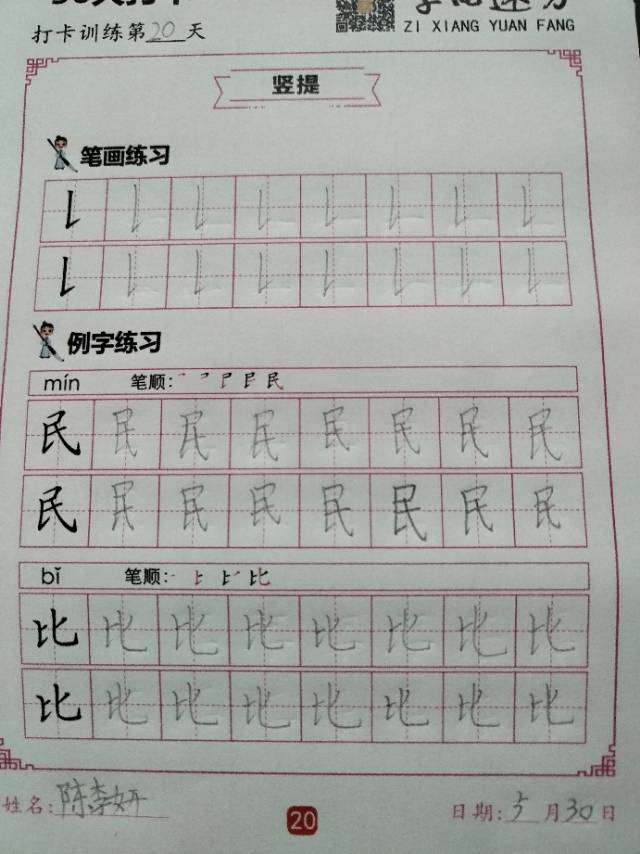 打卡训练第20天
ZI XIANG YUAN FANG
竖提
笔画练习
例字练习
mín 笔顺: 民
民 民 民 民 民 民 民 民
民 民 民 民 民 民 民 民
bǐ 笔顺: 比
比 比 比 比 比 比 比 比
比 比 比 比 比 比 比 比
姓名: 陈李妍 20 日期: 5 月 30 日